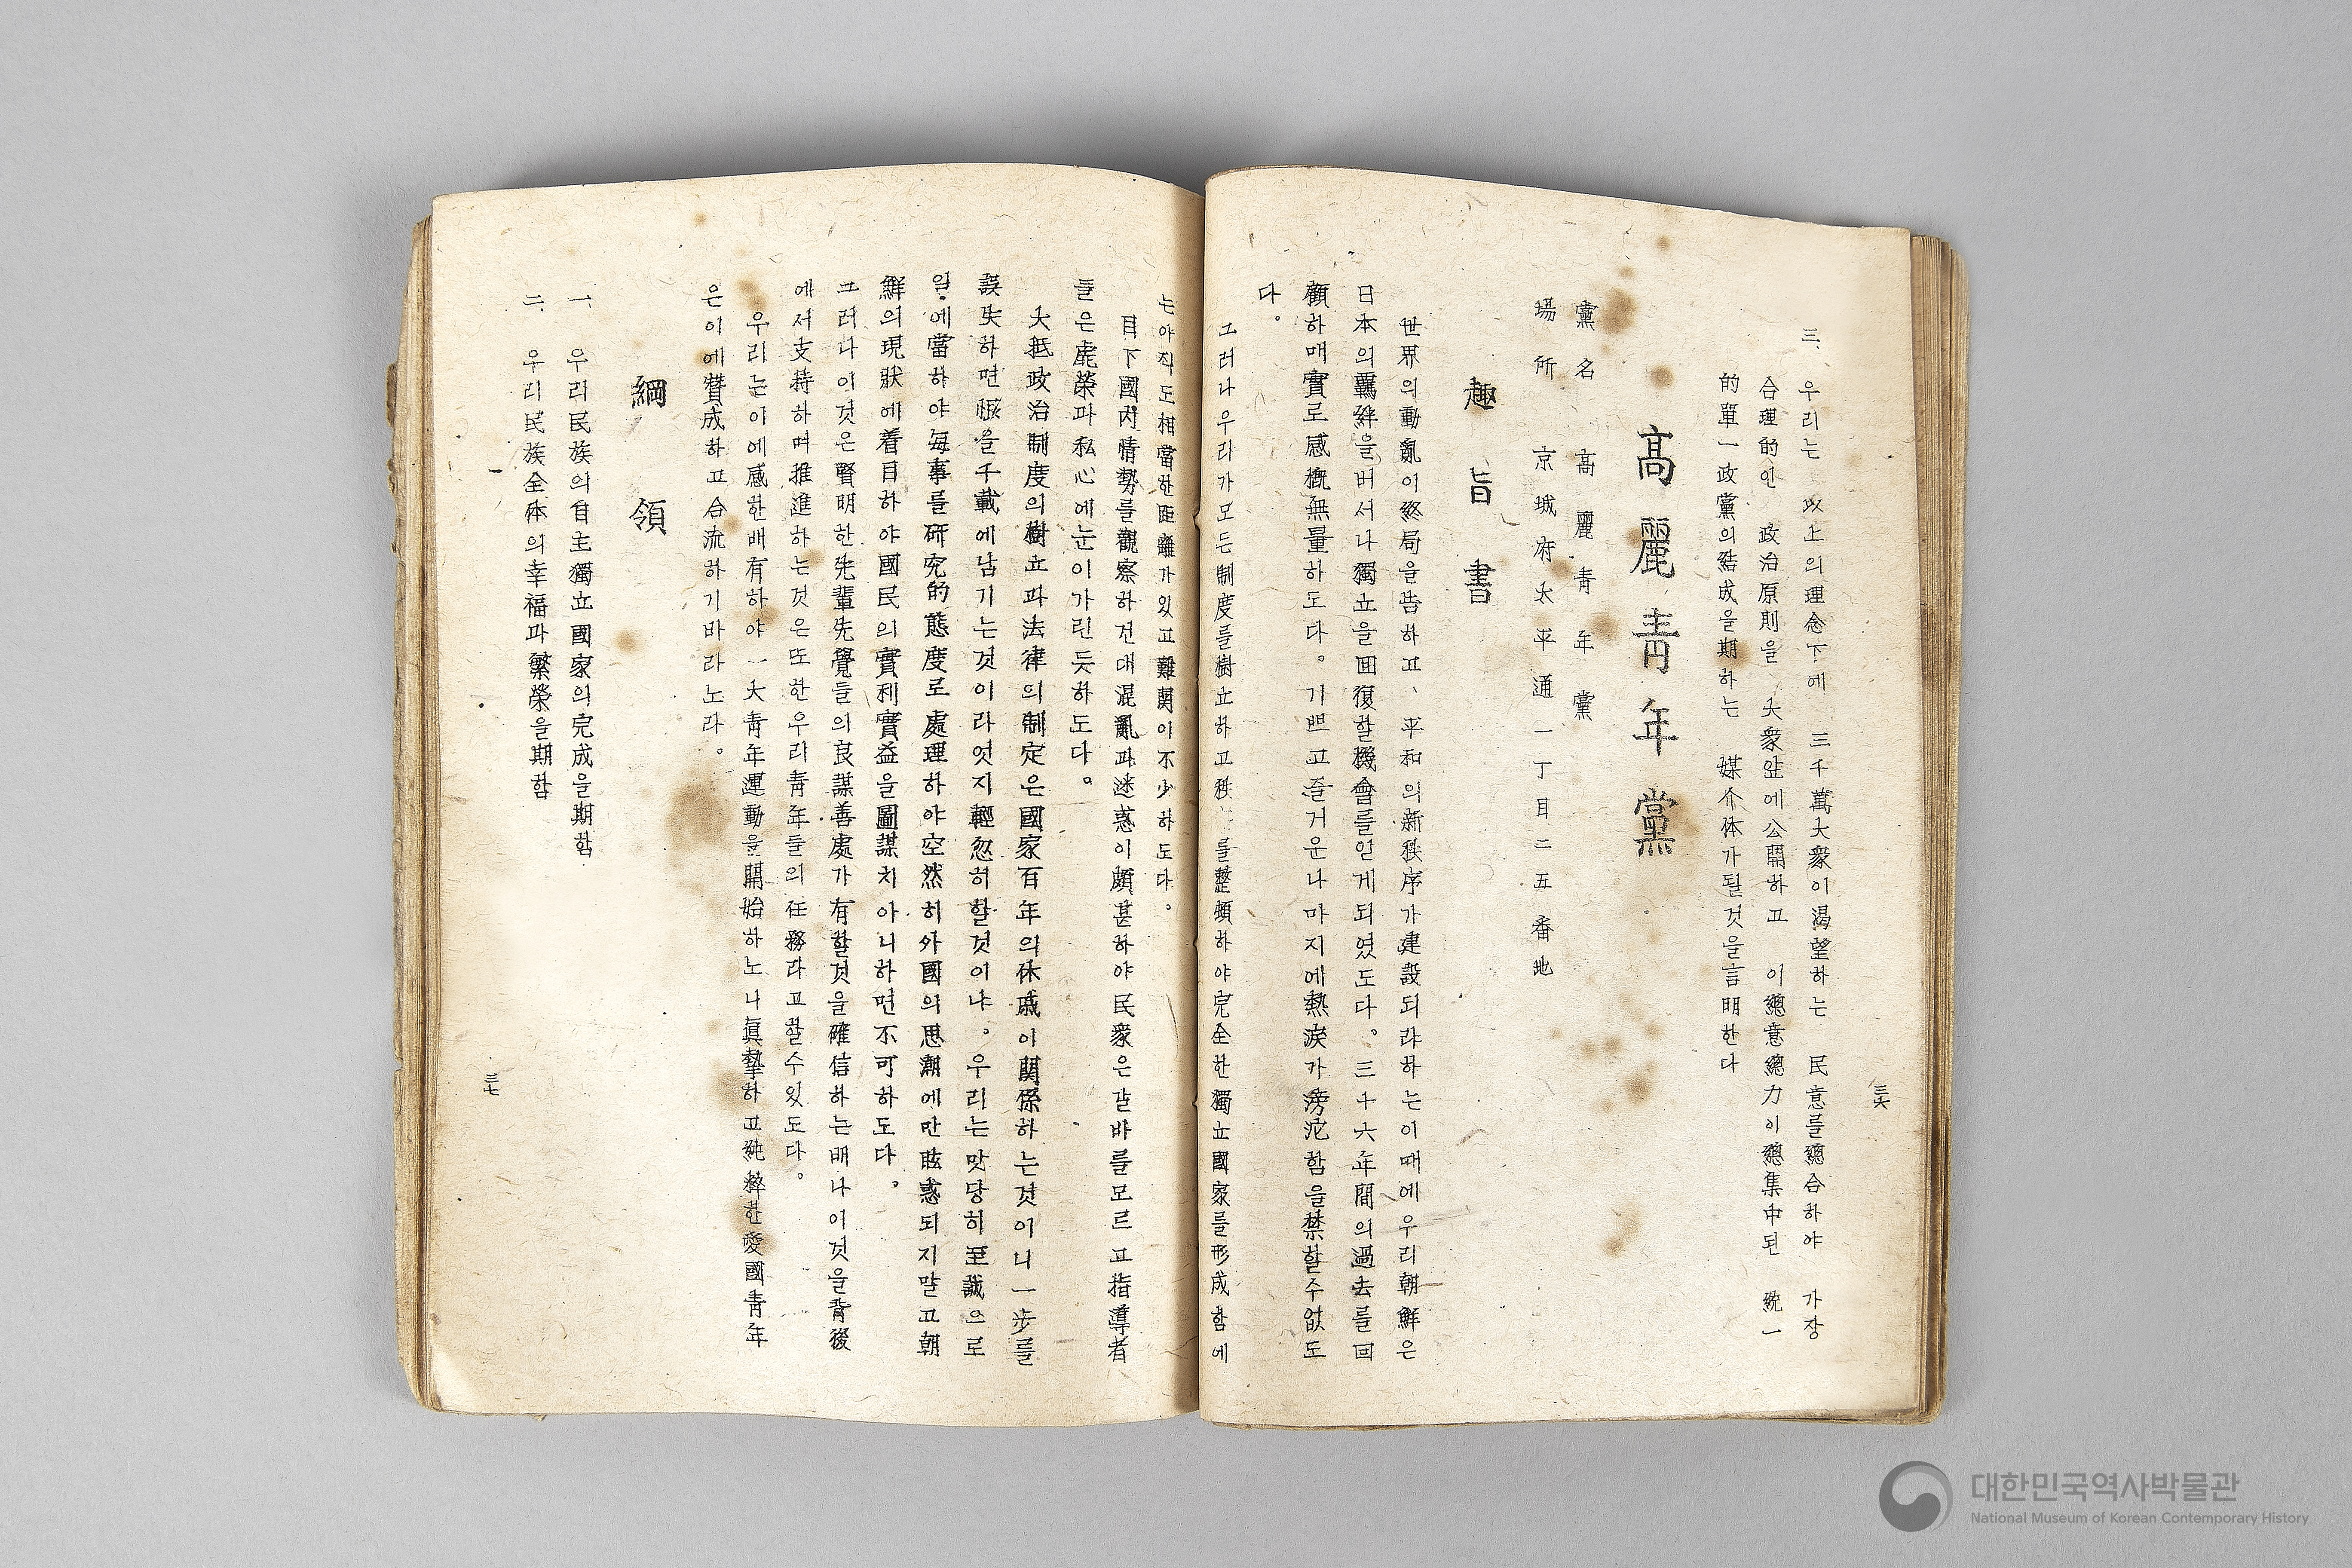 三六
三、 우리는 以上의理念下에 三千萬大衆이渴望하는 民意를總合하야 가장
合理的인 政治原則을 大衆앞에公開하고 이總意總力이總集中된 統一
的單一政黨의結成을期하는 媒介体가될것을言明한다
高麗靑年黨
黨名 高麗靑年黨
場所 京城府太平通一丁目二五番地
趣旨書
世界의動亂이終局을告하고、平和의新秩序가建設되랴하는이때에우리朝鮮은
日本의羈絆을버서나獨立을回復할機會를얻게되였도다。三十六年間의過去를回
顧하매實로感慨無量하도다。기쁘고즐거운나마지에熱淚가滂沱함을禁할수없도
다。
그러나우리가모든制度를樹立하고秩 를整頓하야完全한獨立國家를形成함에
는아직도相當한距離가있고難関이不少하도다。
目下國内情勢를觀察하건대混亂과迷惑이頗甚하야民衆은갈바를모르고指導者
들은虛榮과私心에눈이가린듯하도다。
大抵政治制度의樹立과法律의制定은國家百年의休戚이関係하는것이니一步를
誤失하면恨을千載에남기는것이라엇지輕忽히할것이냐。우리는맛당히至誠으로
일에當하야每事를硏究的態度로處理하야空然히外國의思潮에만眩惑되지말고朝
鮮의現狀에着目하야國民의實利實益을圖謀치아니하면不可하도다。
그러나이것은賢明한先輩先覺들의良謀善處가有할것을確信하는배나이것을背後
에서支持하며推進하는것은또한우리靑年들의任務라고할수있도다。
우리는이에感한배有하야一大靑年運動을開始하노니眞摯하고純粹한愛國靑年
은이에贊成하고合流하기바라노라。
綱領
一、 우리民族의自主獨立國家의完成을期함
二、 우리民族全体의幸福과繁榮을期함
三七
대한민국역사박물관
National Museum of Korean Contemporary History